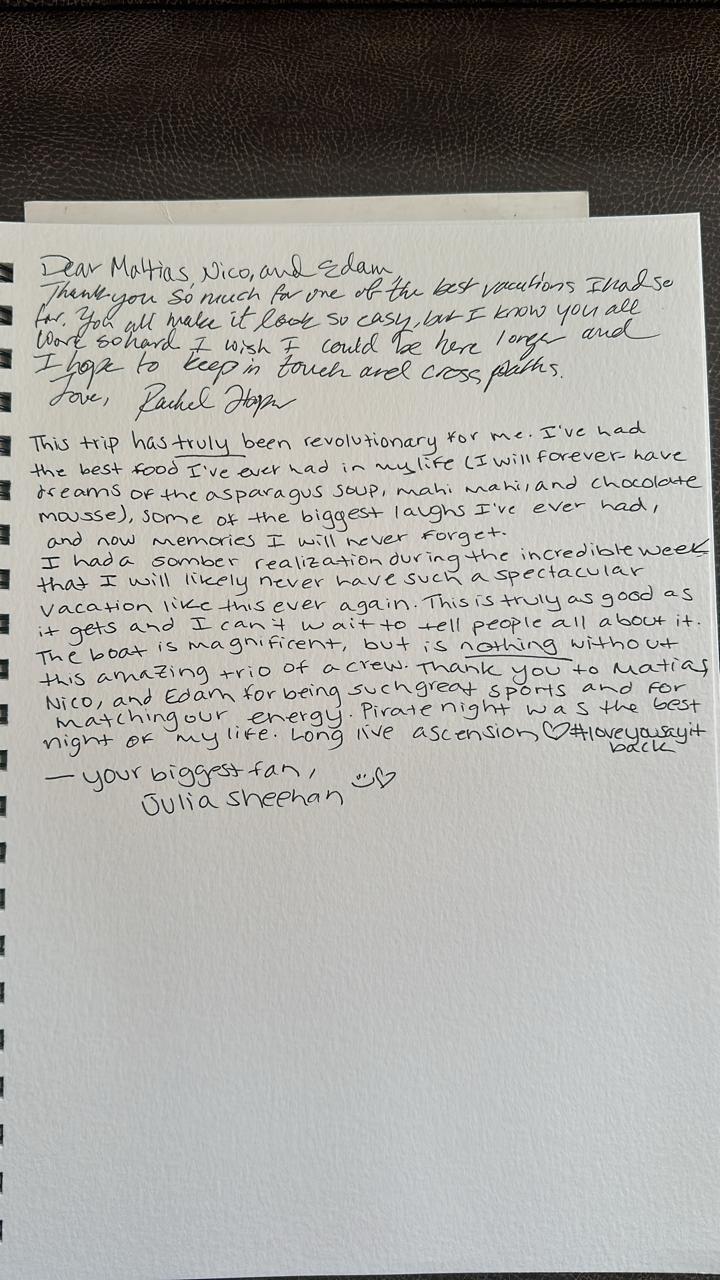 Dear Matias, Nico, and Edam,
Thank you so much for one of the best vacations I had so
far. You all make it look so easy, but I know you all
work so hard I wish I could be here longer and
I hope to keep in touch and cross paths.
Love, Rachel
This trip has truly been revolutionary for me. I've had
the best food I've ever had in my life (I will forever have
dreams of the asparagus soup, mahi mahi, and chocolate
mousse), some of the biggest laughs I've ever had,
and now memories I will never forget.
I had a somber realization during the incredible week
that I will likely never have such a spectacular
vacation like this ever again. This is truly as good as
it gets and I can't wait to tell people all about it.
The boat is magnificent, but is nothing without
this amazing trio of a crew. Thank you to Matias,
Nico, and Edam for being such great sports and for
matching our energy. Pirate night was the best
night of my life. Long live ascension ♡ #loveyousayit
back
— your biggest fan,
Julia Sheehan